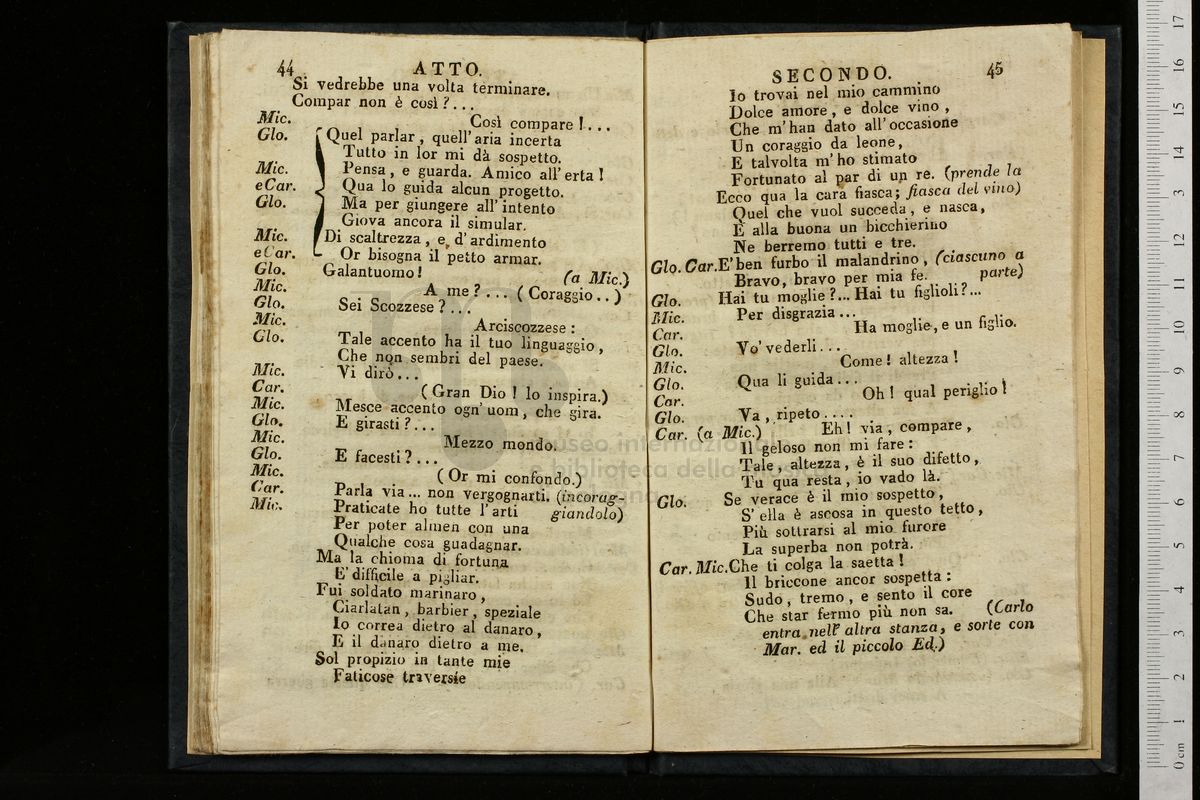 44 ATTO.
Si vedrebbe una volta terminare.
Compar non è così?...
Mic. Così compare!...
Glo. Quel parlar, quell'aria incerta
Tutto in lor mi dà sospetto.
Mic. Pensa, e guarda. Amico all'erta!
eCar. Qua lo guida alcun progetto.
Glo. Ma per giungere all'intento
Giova ancora il simular.
Mic. Di scaltrezza, e d'ardimento
eCar. Or bisogna il petto armar.
Glo. Galantuomo! (a Mic.)
Mic. A me?... (Coraggio..)
Glo. Sei Scozzese?...
Mic. Arciscozzese:
Glo. Tale accento ha il tuo linguaggio,
Che non sembri del paese.
Mic. Vi dirò...
Car. (Gran Dio! lo inspira.)
Mic. Mesce accento ogn'uom, che gira.
Glo. E girasti?...
Mic. Mezzo mondo.
Glo. E facesti?...
Mic. (Or mi confondo.)
Car. Parla via... non vergognarti. (incorag-
Mic. Praticate ho tutte l'arti giandolo)
Per poter almen con una
Qualche cosa guadagnar.
Ma la chioma di fortuna
E' difficile a pigliar.
Fui soldato marinaro,
Ciarlatan, barbier, speziale
Io correa dietro al danaro,
E il danaro dietro a me.
Sol propizio in tante mie
Faticose traversie
SECONDO. 45
Io trovai nel mio cammino
Dolce amore, e dolce vino,
Che m'han dato all'occasione
Un coraggio da leone,
E talvolta m'ho stimato
Fortunato al par di un re. (prende la
Ecco qua la cara fiasca; fiasca del vino)
Quel che vuol succeda, e nasca,
E alla buona un bicchierino
Ne berremo tutti e tre.
Glo. Car. E' ben furbo il malandrino, (ciascuno a
Bravo, bravo per mia fe. parte)
Glo. Hai tu moglie?... Hai tu figlioli?...
Mic. Per disgrazia...
Car. Ha moglie, e un figlio.
Glo. Vo' vederli...
Mic. Come! altezza!
Glo. Qua li guida...
Car. Oh! qual periglio!
Glo. Va, ripeto....
Car. (a Mic.) Eh! via, compare,
Il geloso non mi fare:
Tale, altezza, è il suo difetto,
Tu qua resta, io vado là.
Glo. Se verace è il mio sospetto,
S'ella è ascosa in questo tetto,
Più sottrarsi al mio furore
La superba non potrà.
Car. Mic. Che ti colga la saetta!
Il briccone ancor sospetta:
Sudo, tremo, e sento il core
Che star fermo più non sa. (Carlo
entra nell' altra stanza, e sorte con
Mar. ed il piccolo Ed.)
museo internazionale
e biblioteca della musica
0 cm 1 2 3 4 5 6 7 8 9 10 11 12 13 14 15 16 17